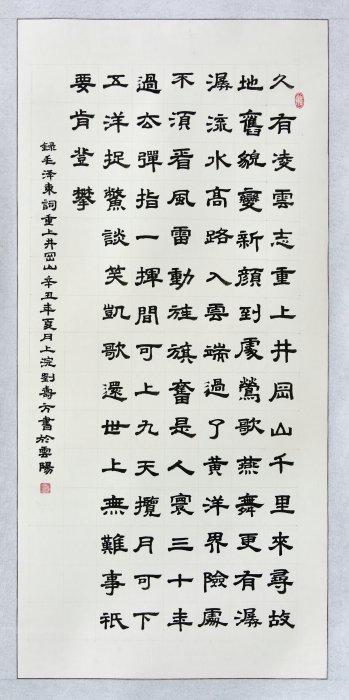 久有凌雲志重上井岡山千里來尋故
地舊貌變新顏到處鶯歌燕舞更有潺
潺流水高路入雲端過了黃洋界險處
不須看風雷動旌旗奮是人寰三十年
過去彈指一揮間可上九天攬月可下
五洋捉鱉談笑凱歌還世上無難事祇
要肯登攀
錄毛泽東詞重上井岡山辛丑年夏月上浣劉壽方書於雲陽